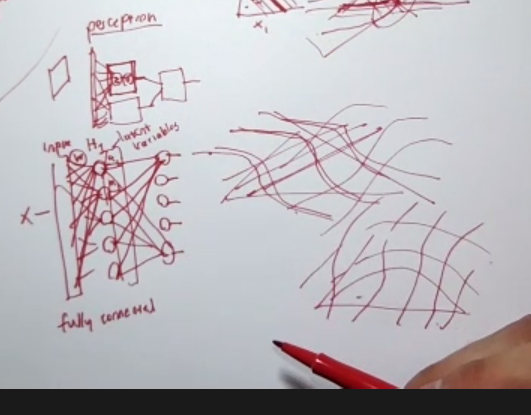 x₁
perceptron
input
H₁
latent
variables
X
fully connected